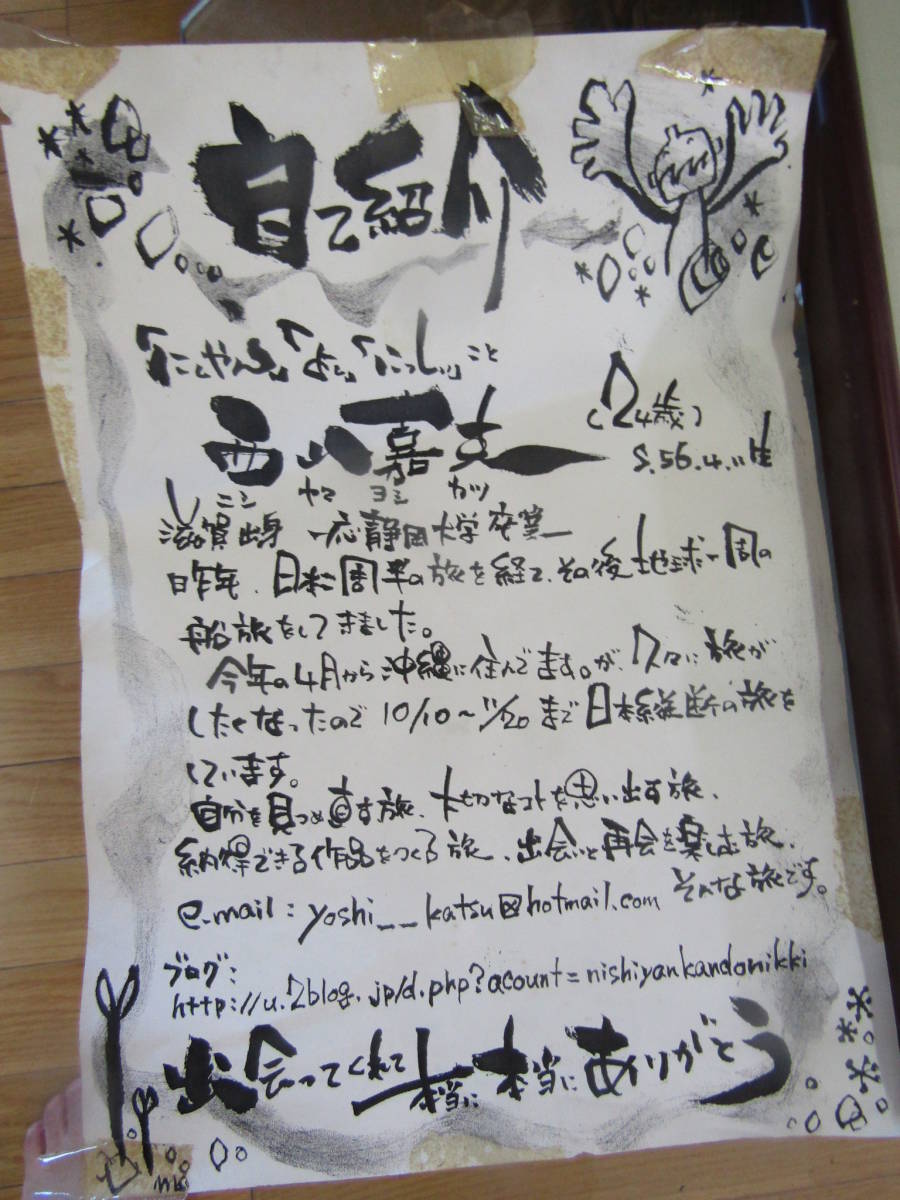 自己紹介
「にしやん」「よし」「にっしぃ」こと
西山嘉克 (24歳)
S.56.4.11生
ニシ ヤマ ヨシ カツ
滋賀出身 一応静岡大学卒業
昨年、日本半周の旅を経て、その後地球一周の
船旅をしてきました。
今年の4月から沖縄に住んでます。が、久々に旅が
したくなったので 10/10〜11/20まで日本縦断の旅を
しています。
自分を見つめ直す旅、大切なコトを思い出す旅、
納得できる作品をつくる旅、出会いと再会を楽しむ旅、
そんな旅です。
e-mail: yoshi__katsu@hotmail.com
ブログ:
http://u.2blog.jp/d.php?acount=nishiyankandonikki
出会ってくれて本当に本当にありがとう